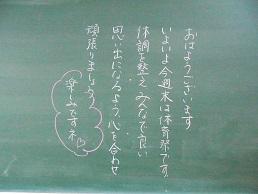 おはようございます
いよいよ今週末は体育祭です。
体調を整え、みんなで良い
思い出になるよう、心を合わせ
頑張りましょう
楽しみですネ♡